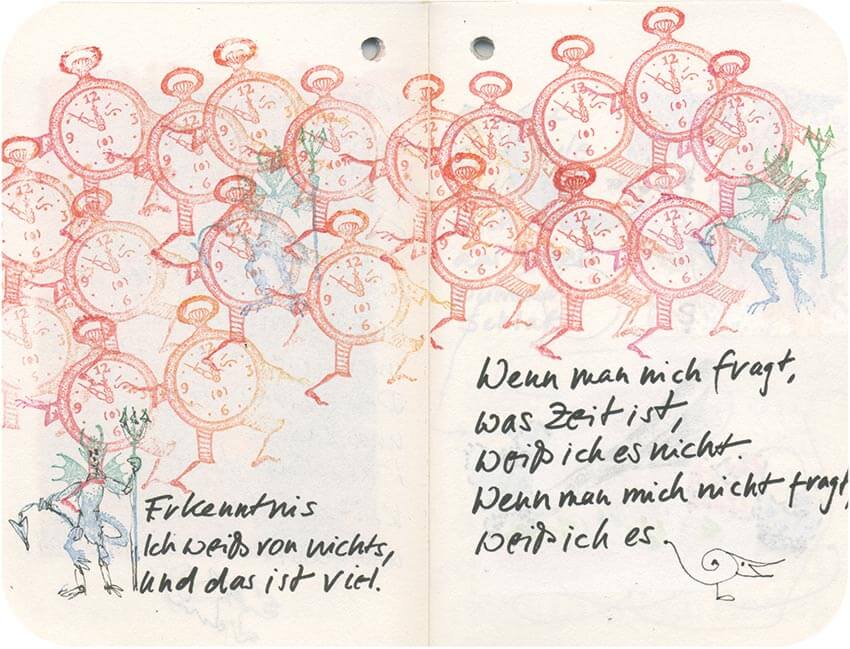 Erkenntnis
Ich weiß von nichts,
und das ist viel.
Wenn man mich fragt,
was Zeit ist,
weiß ich es nicht.
Wenn man mich nicht fragt,
weiß ich es.